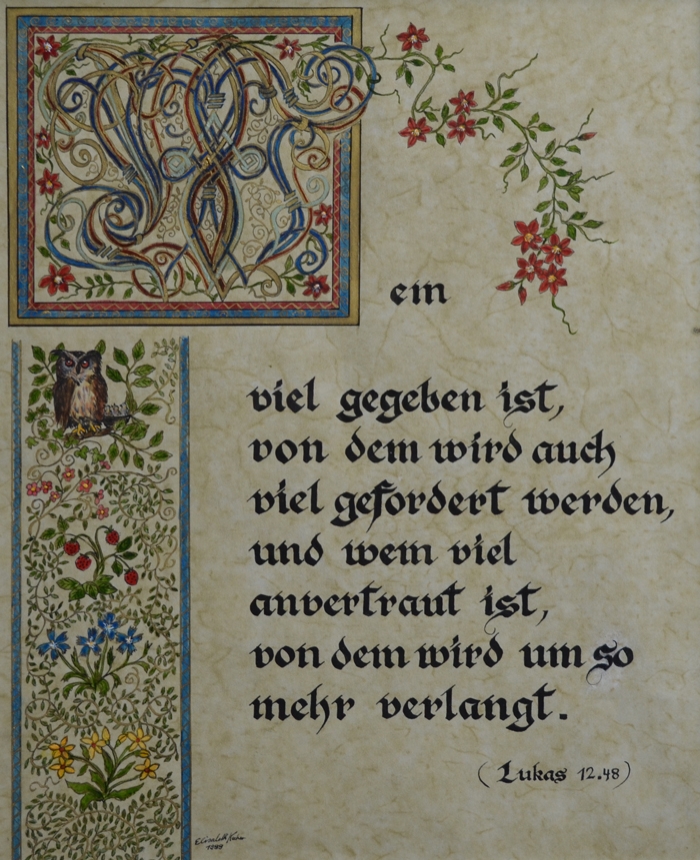 Wem
viel gegeben ist,
von dem wird auch
viel gefordert werden,
und wem viel
anvertraut ist,
von dem wird um so
mehr verlangt.
(Lukas 12.48)